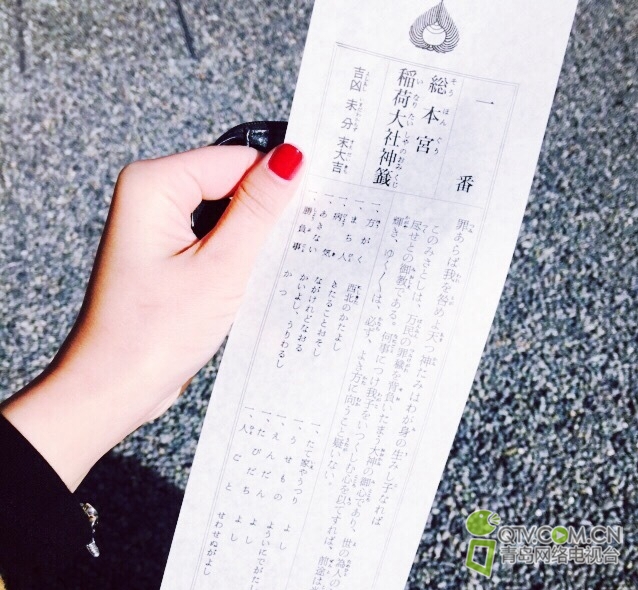 一番
総本宮
稲荷大社神籤
吉凶未分末大吉
罪あらば我を咎めよ天つ神たみはわが身の生みし子なれば
このみさとしは、万民の罪穢を背負いたまう大神の御心であり、世の為人の
尽せとの御教である。何事につけ我子をいつくしむ心を以てすれば、前途は
輝き、ゆく〱は、必ず、よき方に向うこと疑いない。
一、方がく 西北のかたよし
一、まち人 きたることおそし
一、病気 ながけれどなおる
一、あきない かいよし、うりわるし
一、勝負事 かつ
一、たて家やうつり よし
一、うせもの よういにでがたし
一、えんだん よし
一、たびだち よし
一、人 せわせぬがよし
QTV.COM.CN
青岛网络电视台